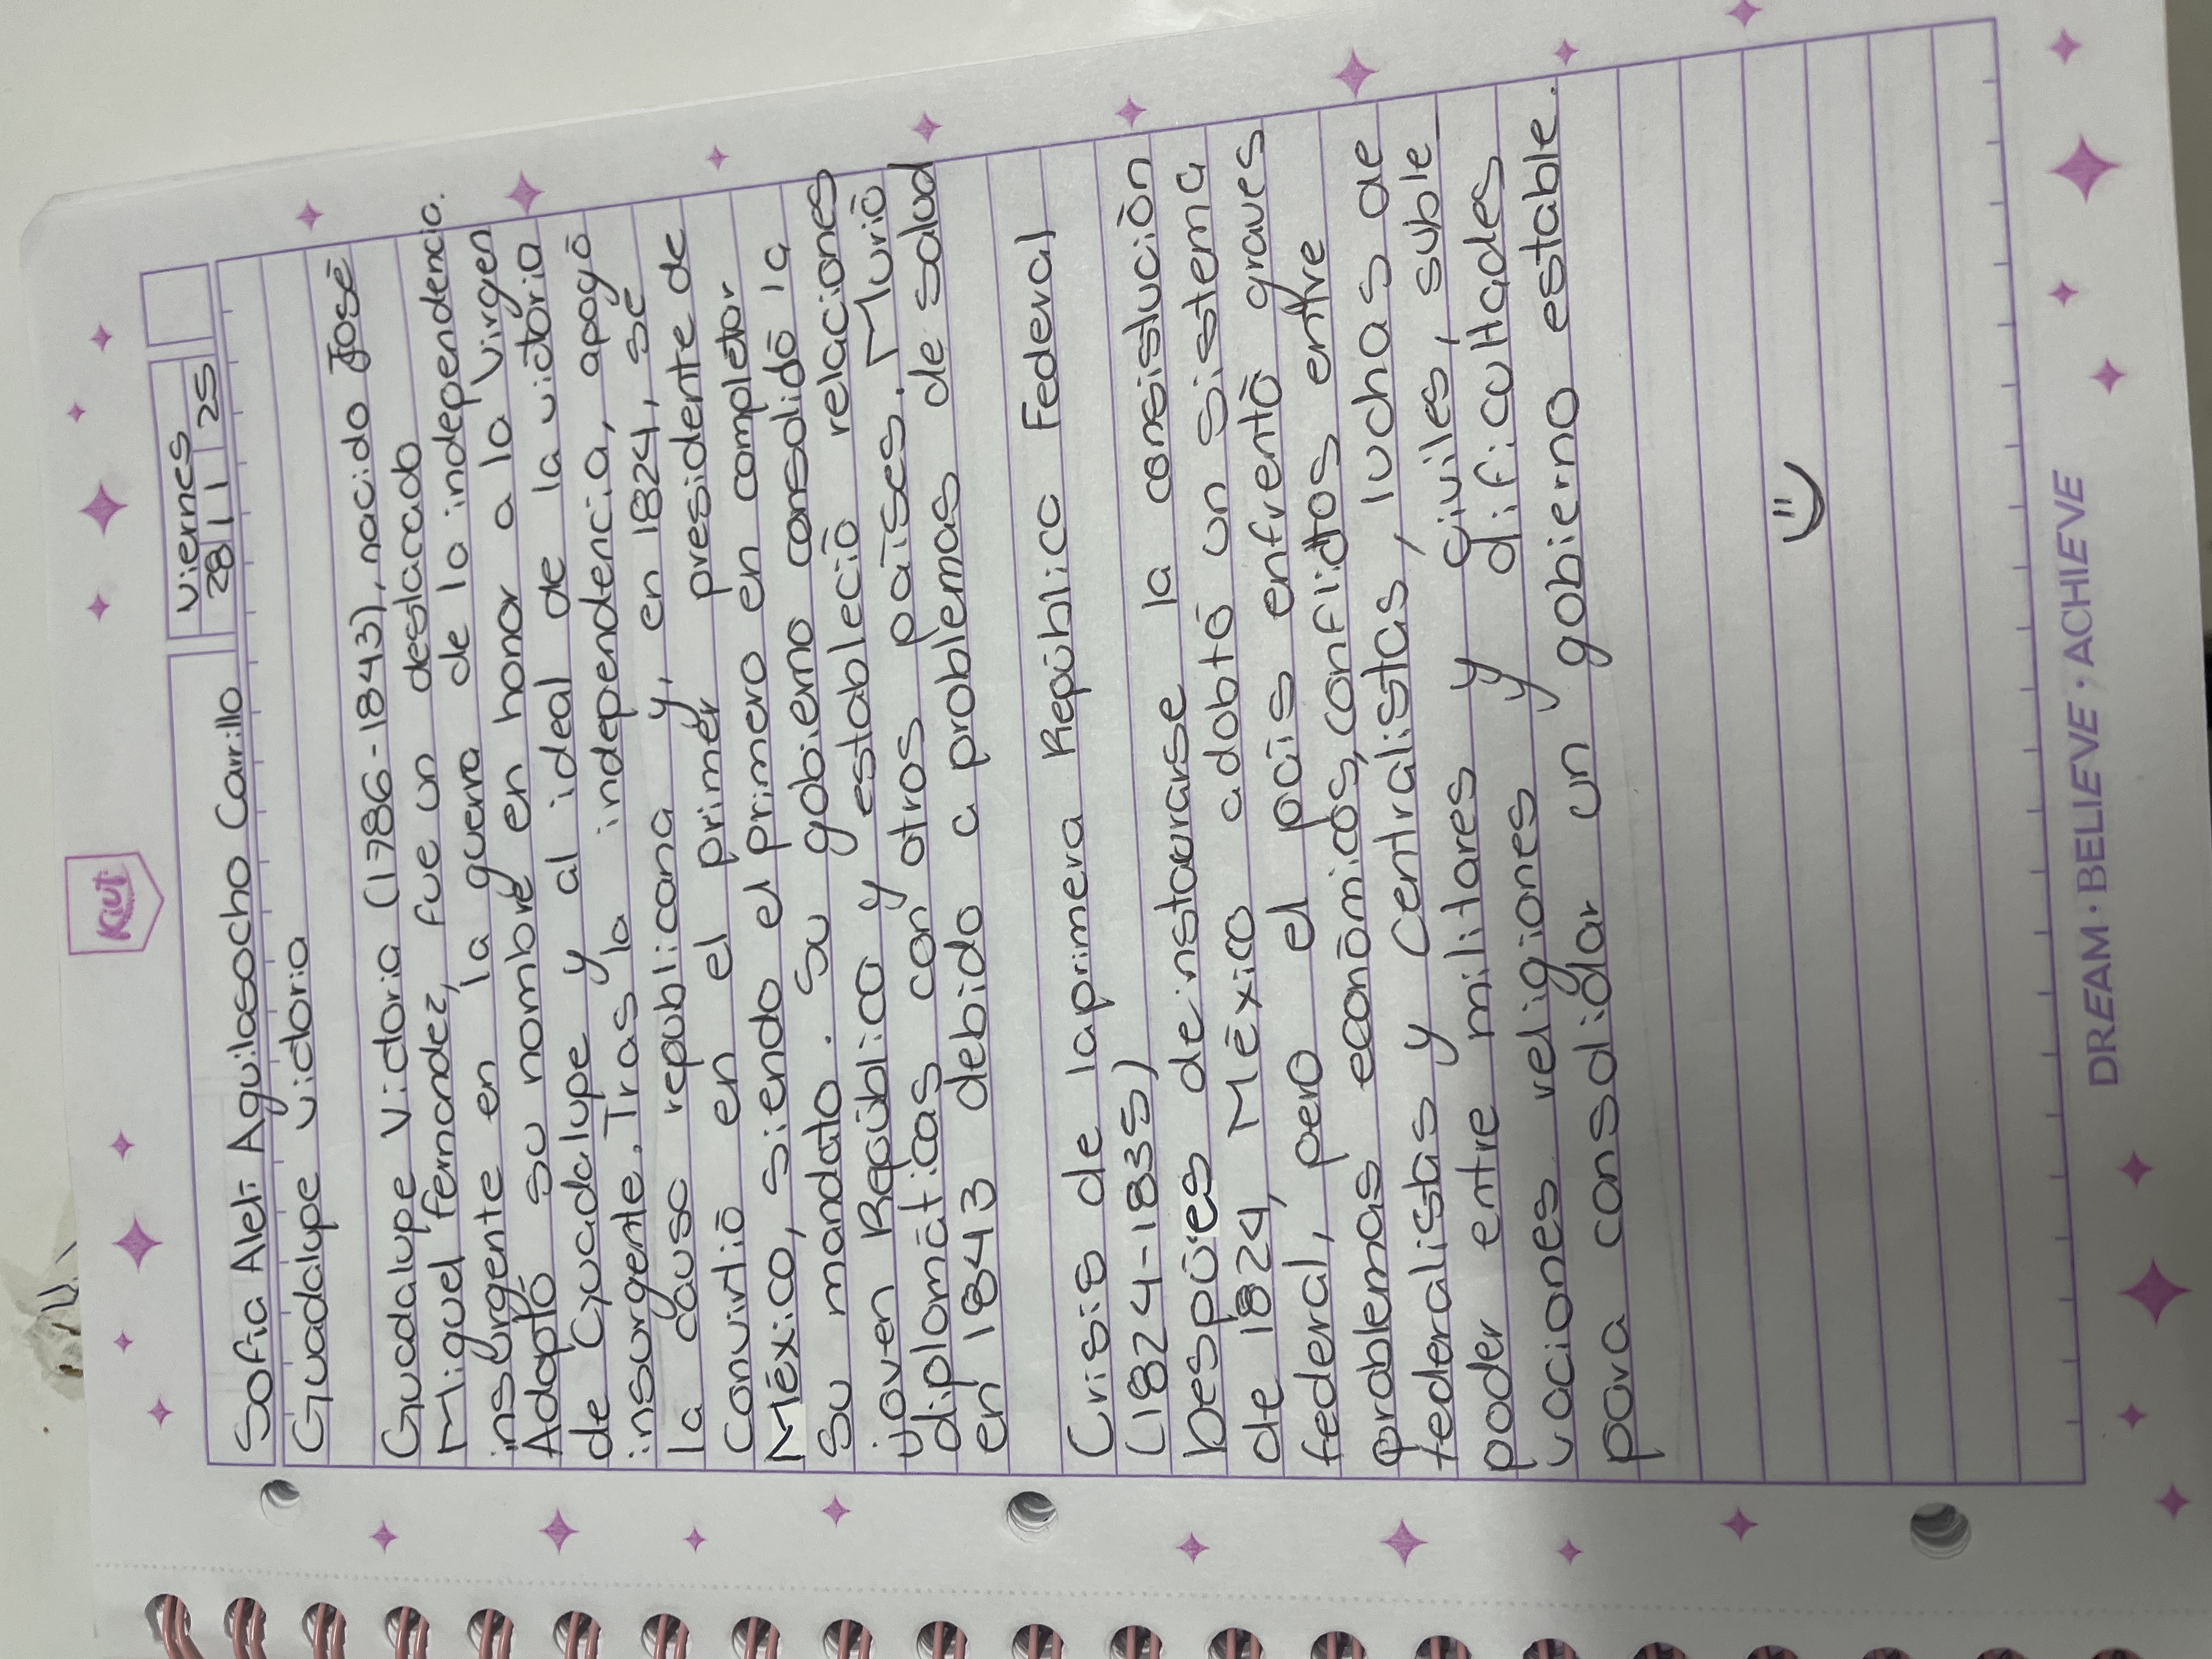 Kiut
viernes
28 11 25
Sofia Aleli Aguilasocho Carrillo
Guadalupe victoria
Guadalupe Victoria (1786-1843), nacido José
Miguel Fernandez, fue un deslacado
insurgente en la guerra de la independencia.
Adoptó su nombre en honor a la Virgen
de Guadalupe y al ideal de la victoria
insurgente. Tras la independencia, apoyó
la causa republicana y, en 1824, se
convirtió en el primer presidente de
México, siendo el primero en completar
su mandato. Su gobierno consolidó la
joven República y estableció relaciones
diplomáticas con otros países. Murió
en 1843 debido a problemas de salud
Crisis de laprimera República Federal
(1824-1835)
Despúes de instaurarse la consislución
de 1824, México adobtó un sistema
federal, pero el país enfrentó graves
problemas económicos, conflictos entre
federalistas y centralistas, luchas de
poder entre militares y civiles, suble_
vaciones religiones y dificultades
para consolidar un gobierno estable.
DREAM · BELIEVE · ACHIEVE